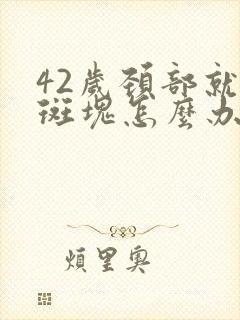 42歲頸部就
斑塊怎麼办
煩里奧